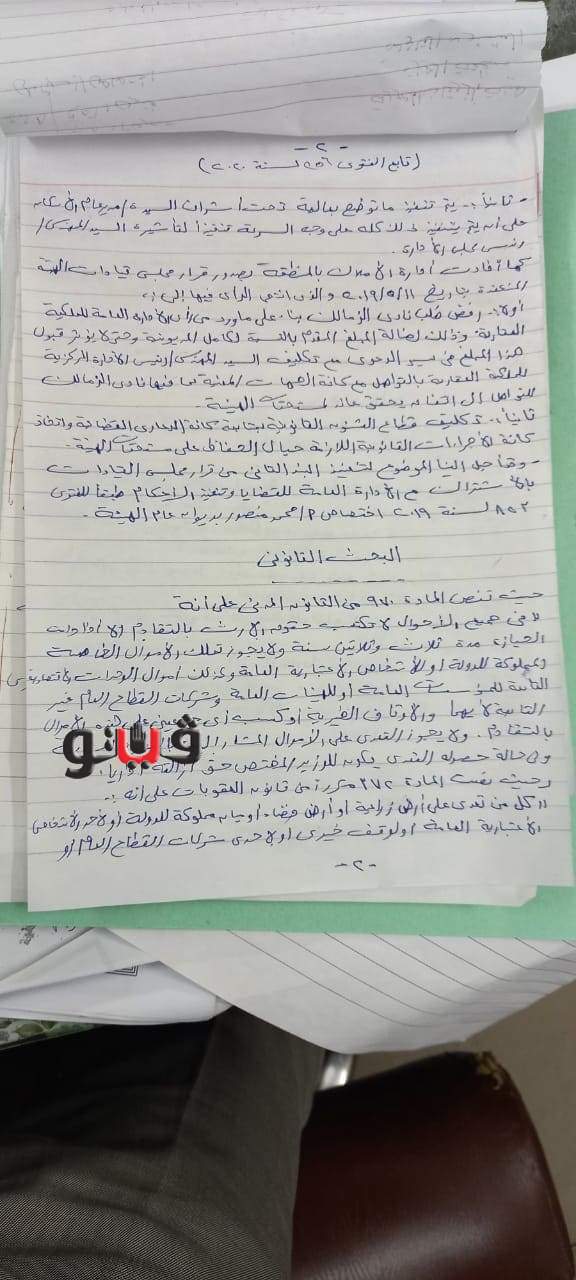 - ٢ -
(تابع الفتوى ٢٥٦ لسنة ٢٠٢٠)
- ثانياً :- يتم تنفيذ ما توضح بعالية تحت أشراف السيدة / مدير عام الأملاك
على أن يتم تنفيذ ذلك كله على وجه السرعة تنفيذاً لتأشيرة السيد المهندس /
رئيس مجلس الأدارة
كما أفادت أدارة الأملاك بالمنطقة بصدور قرار مجلس قيادات الهيئة
المنعقدة بتاريخ ٢٠١٩/٥/١١ والذى انتهى الرأى فيها إلى :
أولاً :- رفض طلب نادى الزمالك بناء على ماورد من رأى الأدارة العامة للملكية
العقارية وذلك لضالة المبلغ المقدم بالنسبة لكامل المديونية وحتى لا يؤثر قبول
هذا المبلغ فى سير الدعوى مع تكليف السيد المهندس / رئيس الأدارة المركزية
للملكية العقارية بالتواصل مع كافة الجهات المعنية بما فيها نادى الزمالك
للتواصل الى اتفاق يحقق صالح لمستحقات الهيئة
ثانياً :- تكليف قطاع الشئون القانونية بمتابعة كافة المجارى القضائية واتخاذ
كافة الأجراءات القانونية اللازمة حيال الحفاظ على مستحقات الهيئة
- وقد أحيل الينا الموضوع لتنفيذ البند الثانى من قرار مجلس القيادات
بالأشتراك مع الأدارة العامة للقضايا وتنفيذ الأحكام طبقاً للفتوى
٨٥٢ لسنة ٢٠١٩ اختصاص م / محمد منصور بديوان عام الهيئة .
البحث القانونى
حيث تنص المادة ٩٧٠ من القانون المدنى على أنة
" فى جميع الأحوال لا تكسب حقوق الأرث بالتقادم الا اذا دامت
الحيازة مدة ثلاث وثلاثين سنة ولا يجوز تملك الأموال الخاصة
المملوكة للدولة أو للأشخاص الأعتبارية العامة وكذلك أموال الوحدات الاقتصادية
التابعة للمؤسسات العامة أو للهيئات العامة وشركات القطاع العام غير
التابعة لأيهما والأوقاف الخيرية أو كسب أى حق عينى على هذه الأموال
بالتقادم . ولا يجوز التعدى على الأموال المشار
وفى حالة حصول التعدى يكون للوزير المختص حق ازالته أدارياً
وحيث نصت المادة ٣٧٢ مكرر من قانون العقوبات على أنه :-
" كل من تعدى على أرض زراعية أو أرض فضاء أو مبان مملوكة للدولة أو لأحد الأشخاص
الأعتبارية العامة أو لوقف خيرى أو لأحدى شركات القطاع العام أو
- ٢ -
ڤيتو